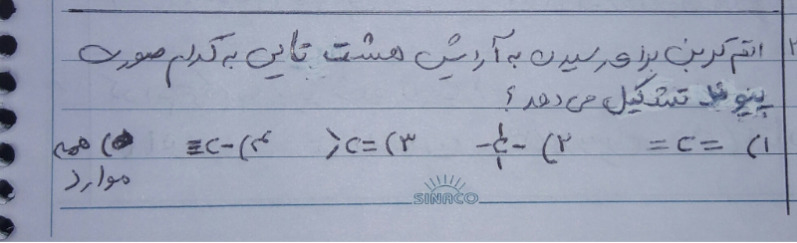 اتم کربن برای رسیدن به آرایش هشت تایی به کدام صورت
پیوند تشکیل می دهد ؟
۱) =C= ۲) -C- ۳) =C< ۴) -C≡ ۵) همه
موارد
SINACO